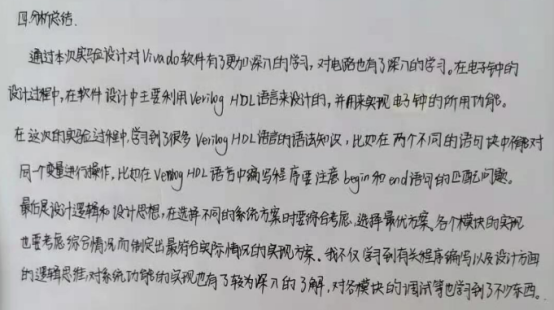 四.分析总结.
通过本次实验设计对Vivado软件有了更加深入的学习,对电路也有了深入的学习。在电子钟的
设计过程中,在软件设计中主要利用Verilog HDL语言来设计的,并用来实现电子钟的所用功能。
在这次的实验过程中,学习到了很多Verilog HDL语言的语法知识,比如在两个不同的语句块中能对
同一个变量进行操作,比如在Verilog HDL语言中编写程序要注意begin和end语句的匹配问题。
最后是设计逻辑和设计思想,在选择不同的系统方案时要综合考虑,选择最优方案、各个模块的实现
也要考虑综合情况而制定出最符合实际情况的实现方案。我不仅学习到有关程序编写以及设计方面
的逻辑思维,对系统功能的实现也有了较为深入的了解,对各模块的调试等也学习到了不少东西。